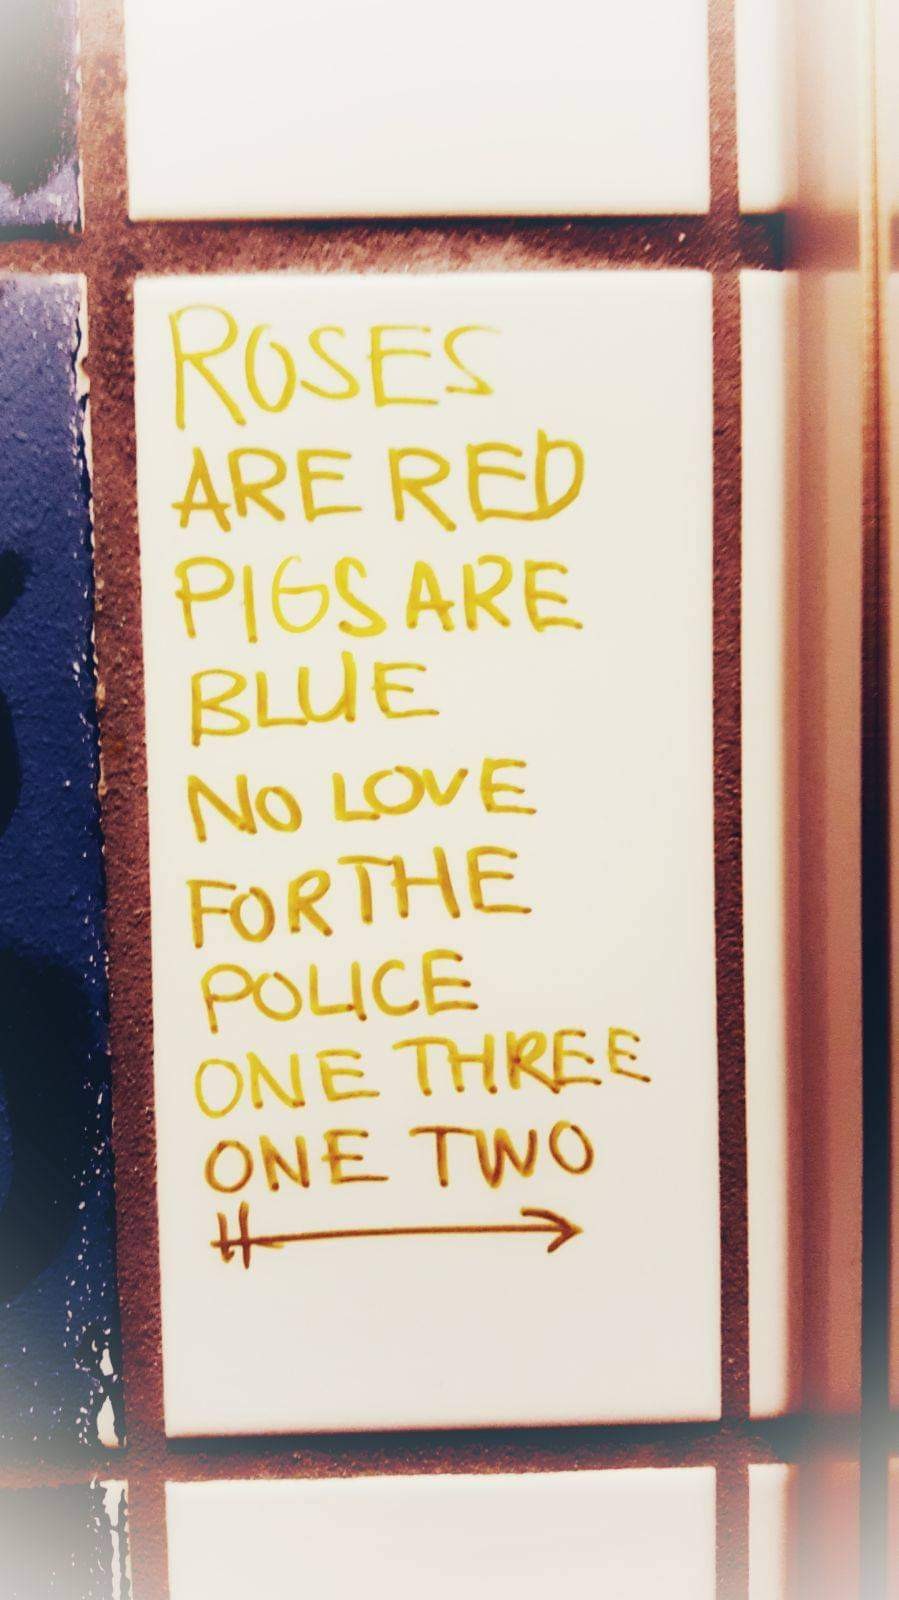 ROSES
ARE RED
PIGS ARE
BLUE
NO LOVE
FOR THE
POLICE
ONE THREE
ONE TWO